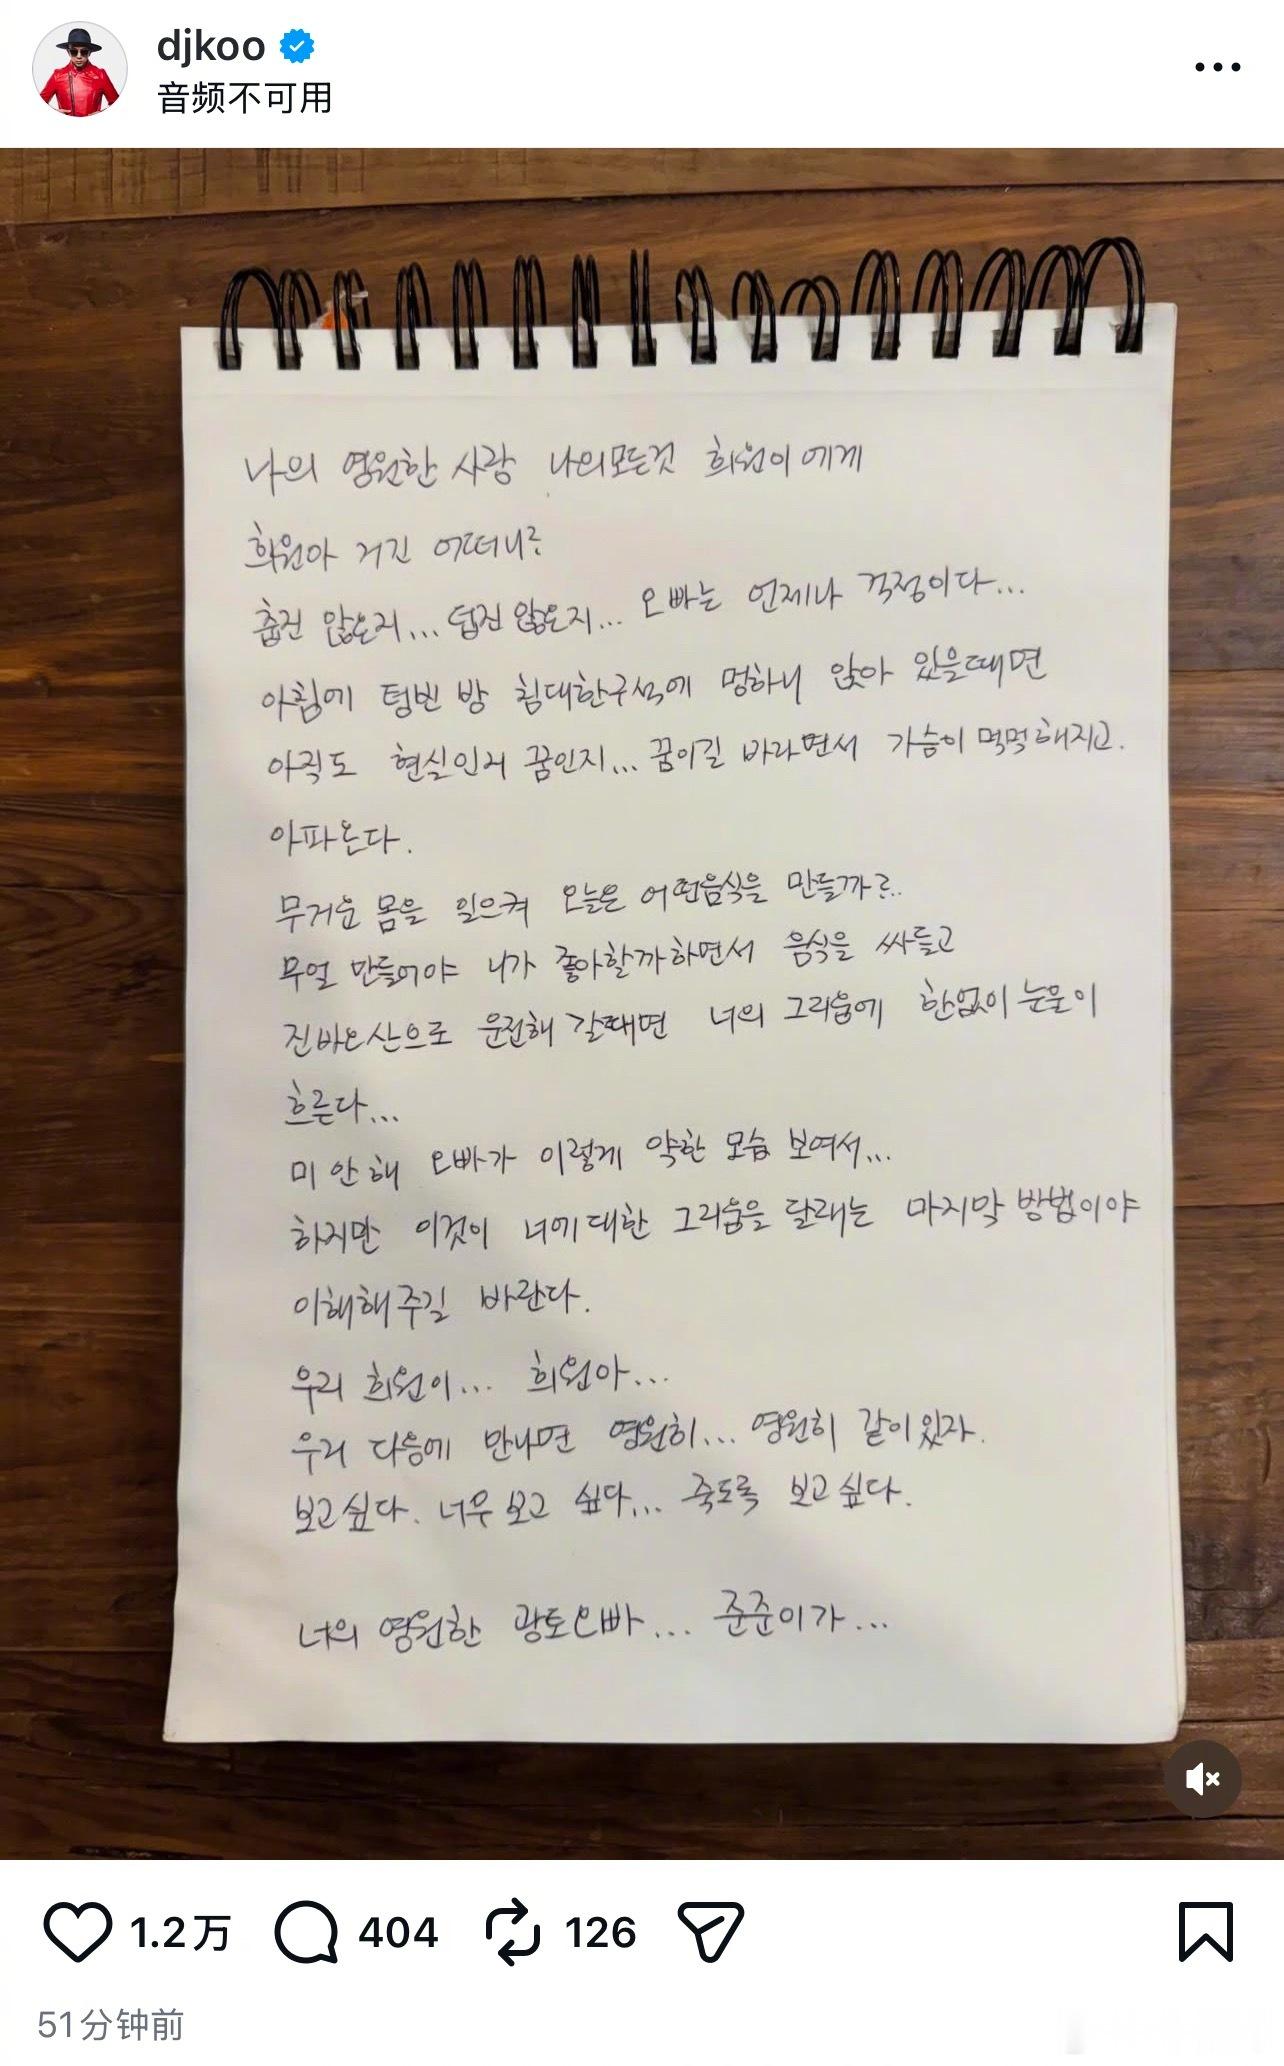 djkoo
音频不可用
나의 영원한 사랑 나의모든것 희원이에게
희원아 거긴 어떠니?
춥진 않은지... 덥진 않은지... 오빠는 언제나 걱정이다...
아침에 텅빈 방 침대한구석에 멍하니 앉아 있을때면
아직도 현실인지 꿈인지... 꿈이길 바라면서 가슴이 먹먹해지고.
아파온다.
무거운 몸을 일으켜 오늘은 어떤음식을 만들까?..
무얼 만들어야 니가 좋아할까하면서 음식을 싸들고
진바오산으로 운전해 갈때면 너의 그리움에 한없이 눈물이
흐른다...
미안해 오빠가 이렇게 약한 모습 보여서...
하지만 이것이 너에대한 그리움을 달래는 마지막 방법이야
이해해주길 바란다.
우리 희원이... 희원아...
우리 다음에 만나면 영원히... 영원히 같이있자.
보고싶다. 너무 보고 싶다... 죽도록 보고싶다.
너의 영원한 광토오빠... 준준이가...
1.2万 404 126
51分钟前